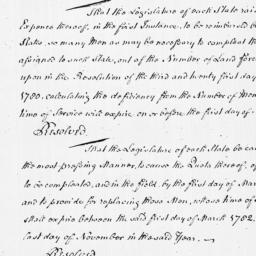 That the Legislature of each State rai
Expence thereof, in the first Instance, to be reimbursed b
States, so many Men as may be necessary to compleat th
assigned to such State, out of the Number of Land forc
upon in the Resolution of the third and twenty first day
1780. calculating the deficiency from the Number of Men
time of Service will expire on or before the first day of
Resolved.
That the Legislature of each State be ca
the most pressing Manner, to cause the Quota thereof, o
to be compleated, and in the field by the first day of Mar
and to provide for replacing those Men, whose time of
shall expire between the said first day of March 1782.
last day of November in the said Year.
Resolved